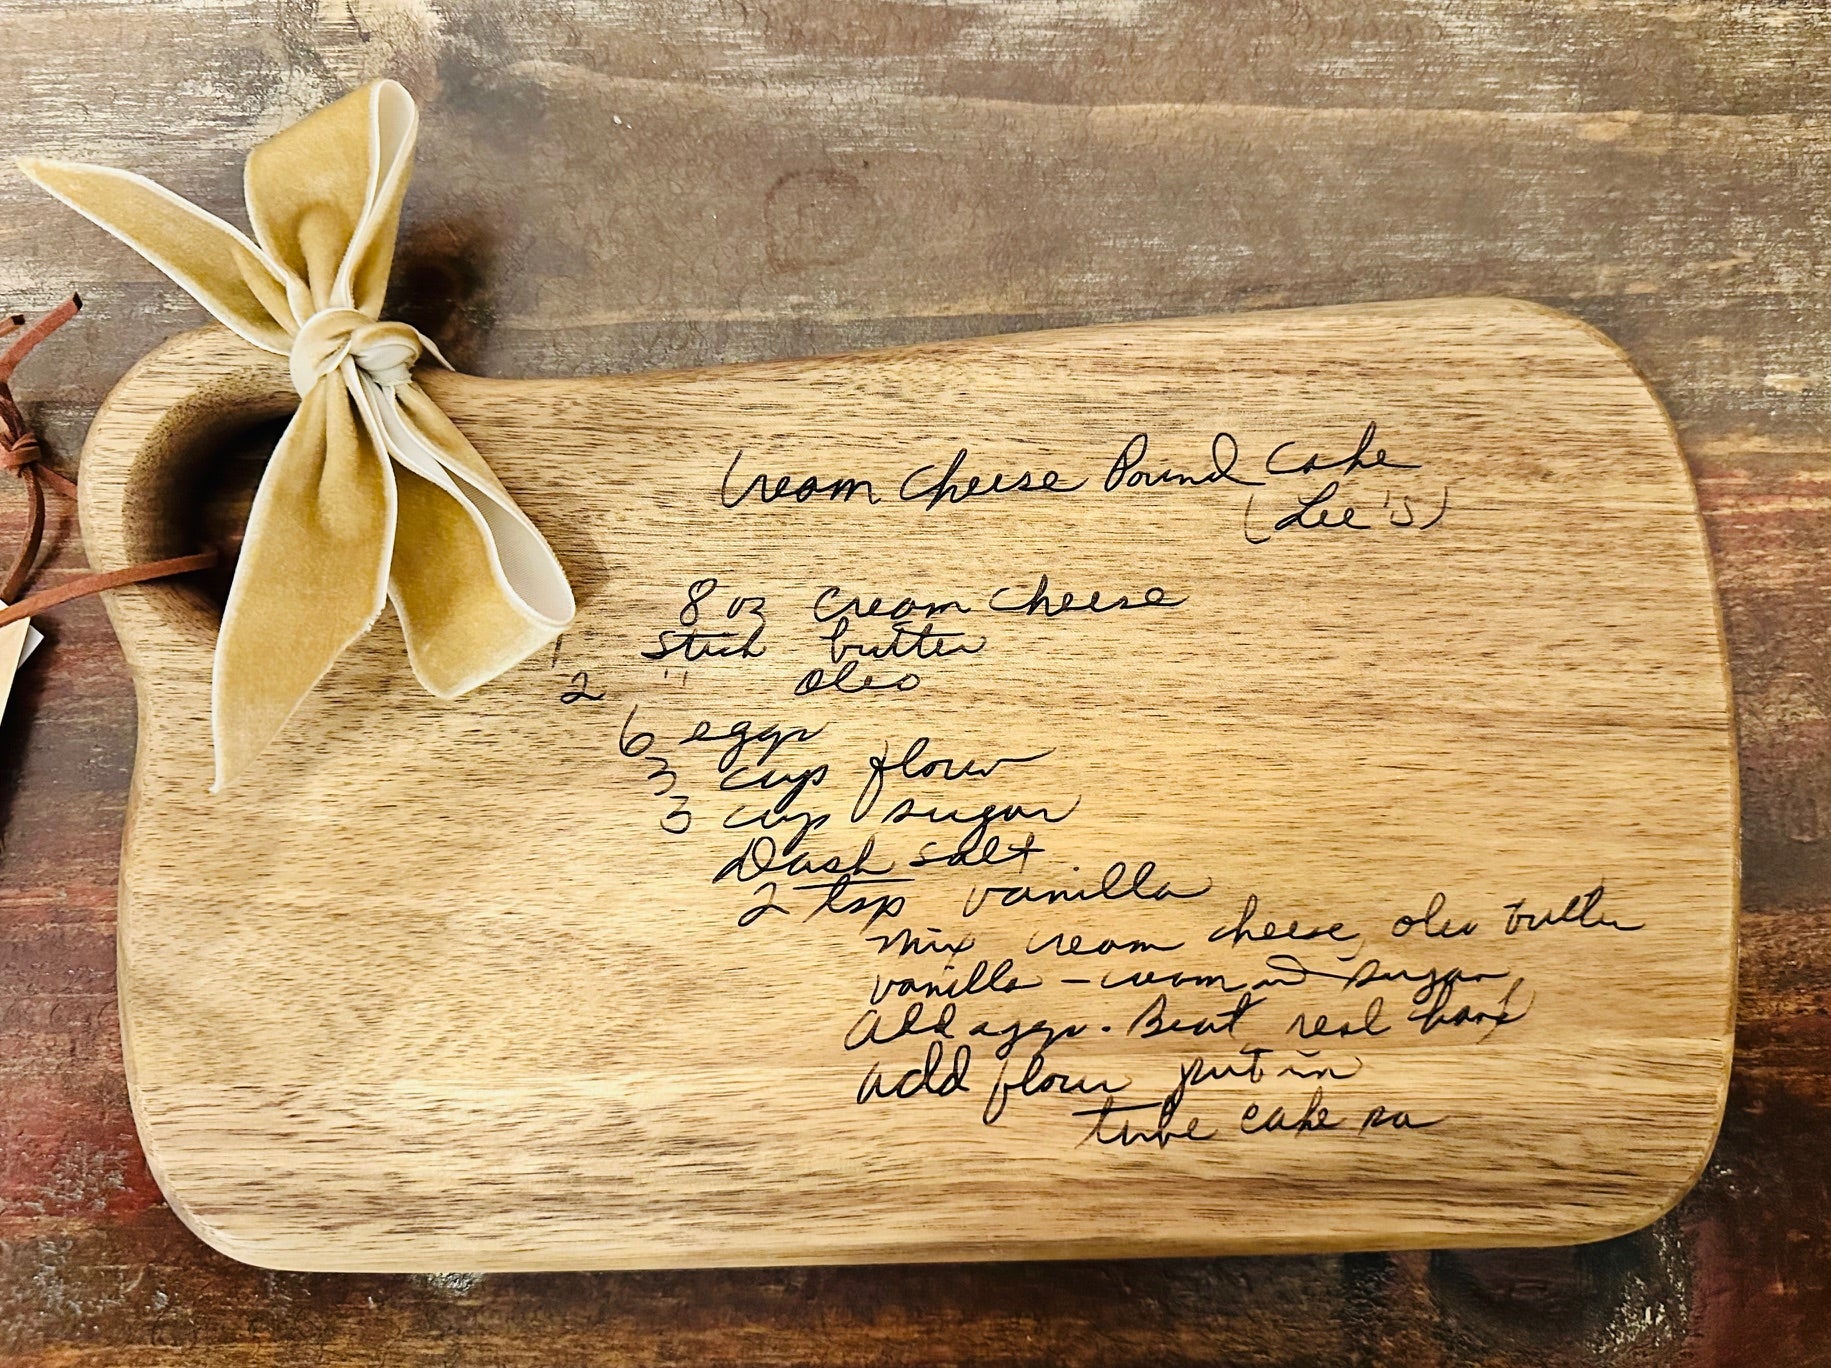 Cream Cheese Pound Cake
(Lee's)
8 oz cream cheese
1 stick butter
2 " oleo
6 eggs
3 cup flour
3 cup sugar
Dash salt
2 tsp vanilla
Mix cream cheese, oleo butter
vanilla - cream in sugar
add eggs. Beat real hard
add flour put in
tube cake pa